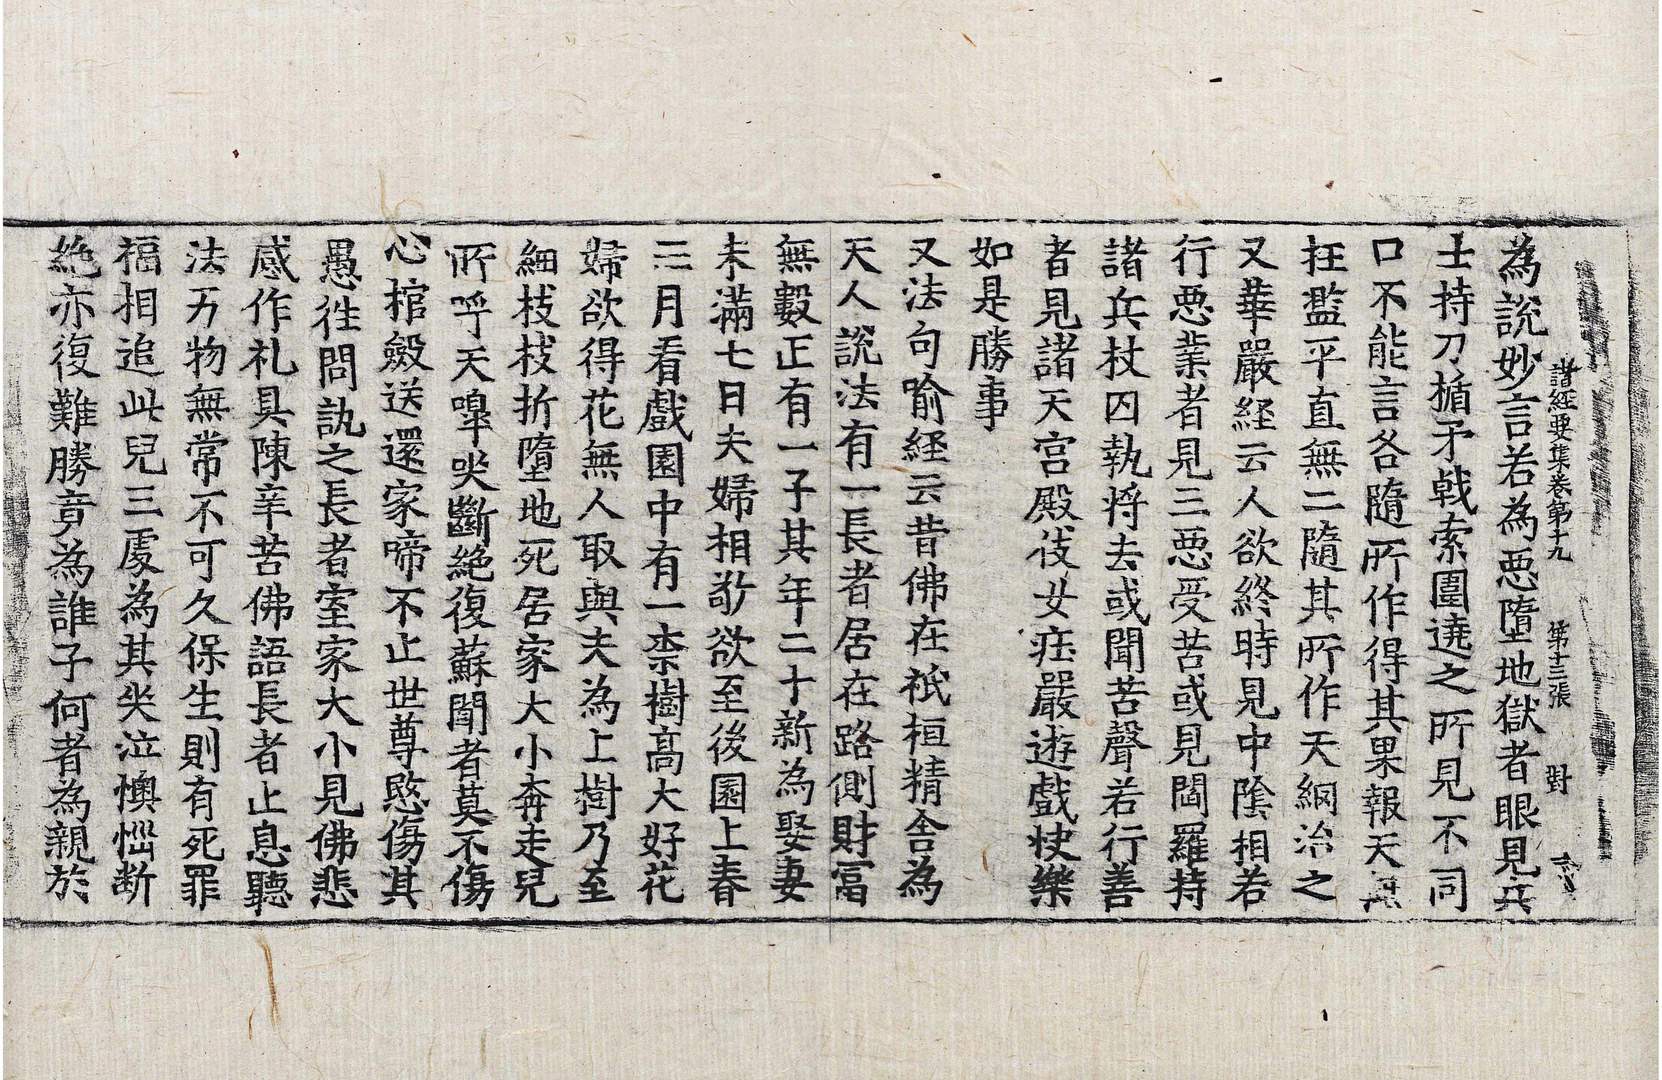 諸經要集卷第十九 第十三張 對
為說妙言若為惡墮地獄者眼見兵
士持刀楯矛戟索圍遶之所見不同
口不能言各隨所作得其果報天無
枉濫平直無二隨其所作天網治之
又華嚴経云人欲終時見中陰相若
行惡業者見三惡受苦或見閻羅持
諸兵杖囚執将去或聞苦聲若行善
者見諸天宮殿伎女庄嚴遊戲快樂
如是勝事
又法句喻経云昔佛在祇桓精舍為
天人說法有一長者居在路側財富
無數正有一子其年二十新為娶妻
未滿七日夫婦相敬欲至後園上春
三月看戲園中有一柰樹高大好花
婦欲得花無人取與夫為上樹乃至
細枝枝折墮地死居家大小奔走兒
所呼天嘷哭斷絶復蘇聞者莫不傷
心棺斂送還家啼不止世尊愍傷其
愚徃問訊之長者室家大小見佛悲
感作礼具陳辛苦佛語長者止息聽
法万物無常不可久保生則有死罪
福相追此兒三處為其哭泣懊惱断
絶亦復難勝竟為誰子何者為親於